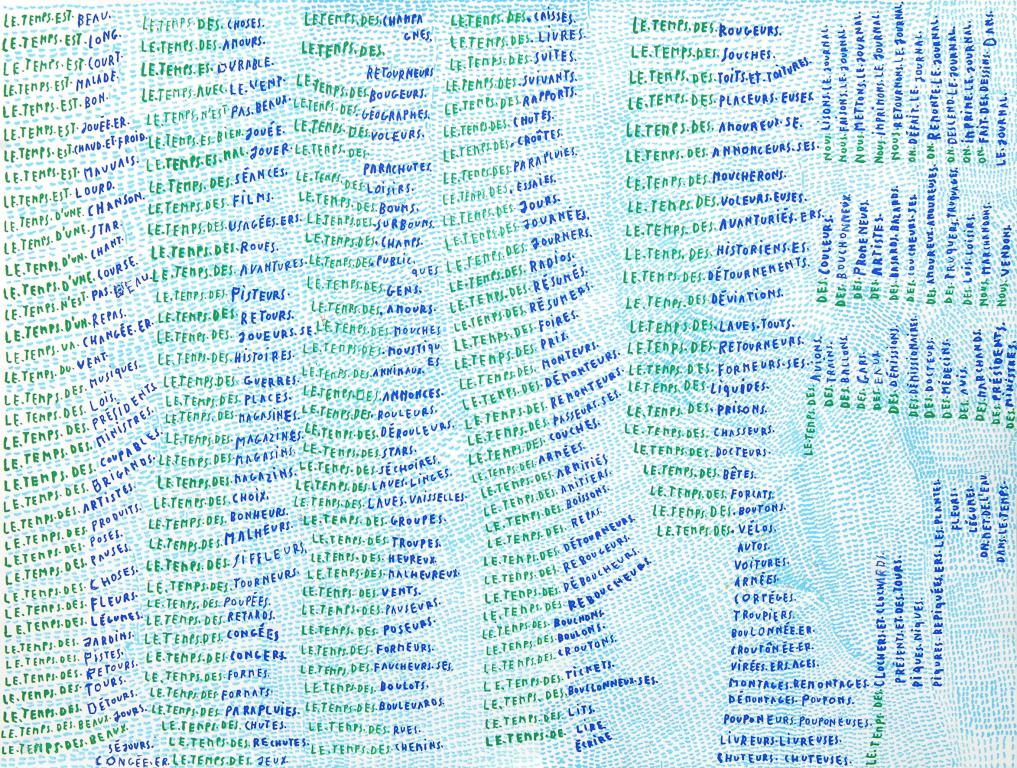 LE.TEMPS.EST. BEAU.
LE.TEMPS.EST. LONG.
LE.TEMPS.EST. COURT.
LE.TEMPS.EST. MALADE.
LE.TEMPS.EST. BON.
LE.TEMPS.EST. JOUÉE.ER.
LE.TEMPS.EST.CHAUD.ET.FROID.
LE.TEMPS.EST. MAUVAIS.
LE.TEMPS.EST. LOURD.
LE.TEMPS.D'UNE. CHANSON.
LE.TEMPS.D'UNE. STAR.
LE.TEMPS.D'UN. CHANT.
LE.TEMPS.D'UNE. COURSE.
LE.TEMPS.N'EST. PAS.BEAU.
LE.TEMPS.D'UN. REPAS.
LE.TEMPS.VA. CHANGÉE.ER.
LE.TEMPS.DU. VENT.
LE.TEMPS.DES. MUSIQUES.
LE.TEMPS.DES. LOIS.
LE.TEMPS.DES. PRÉSIDENTS.
LE.TEMPS.DES. MINISTRES.
LE.TEMPS.DES. COUPABLES.
LE.TEMPS.DES. BRIGANDS.
LE.TEMPS.DES. ARTISTES.
LE.TEMPS.DES. PRODUITS.
LE.TEMPS.DES. POSES.
LE.TEMPS.DES. PAUSES.
LE.TEMPS.DES. CHOSES.
LE.TEMPS.DES. FLEURS.
LE.TEMPS.DES. LÉGUMES.
LE.TEMPS.DES. JARDINS.
LE.TEMPS.DES. PISTES.
LE.TEMPS.DES. RETOURS.
LE.TEMPS.DES. TOURS.
LE.TEMPS.DES. DÉTOURS.
LE.TEMPS.DES.BEAUX. JOURS.
LE.TEMPS.DES.BEAUX.
SÉJOURS.
CONGÉE.ER.
LE.TEMPS.DES. CHOSES.
LE.TEMPS.DES. AMOURS.
LE.TEMPS.ES. DURABLE.
LE.TEMPS.AVEC. LE.VENT.
LE.TEMPS.N'EST PAS.BEAUX.
LE.TEMPS.ES.BIEN. JOUÉE.
LE.TEMPS.ES.MAL. JOUER.
LE.TEMPS.DES. SÉANCES.
LE.TEMPS.DES. FILMS.
LE.TEMPS.DES. USAGÉES.ERS.
LE.TEMPS.DES. ROUES.
LE.TEMPS.DES. AVANTURES.
LE.TEMPS.DES. PISTEURS.
LE.TEMPS.DES. RETOURS.
LE.TEMPS.DES. JOUEURS.SE.
LE.TEMPS.DES. HISTOIRES.
LE.TEMPS.DES. GUERRES.
LE.TEMPS.DES. PLACES.
LE.TEMPS.DES. MAGASINES.
LE.TEMPS.DES. MAGAZINES.
LE.TEMPS.DES. MAGASINS.
LE.TEMPS.DES. MAGAZINS.
LE.TEMPS.DES. CHOIX.
LE.TEMPS.DES. BONHEURS.
LE.TEMPS.DES. MALHEURS.
LE.TEMPS.DES. SIFFLEURS.
LE.TEMPS.DES. TOURNEURS.
LE.TEMPS.DES. POUPÉES.
LE.TEMPS.DES. RETARDS.
LE.TEMPS.DES. CONGÉES
LE.TEMPS.DES. CONGERS.
LE.TEMPS.DES. FORMES.
LE.TEMPS.DES. FORMATS.
LE.TEMPS.DES. PARAPLUIES.
LE.TEMPS.DES. CHUTES.
LE.TEMPS.DES. RECHUTES.
LE.TEMPS.DES. JEUX.
LE.TEMPS.DES. CHAMPA
GNES.
LE.TEMPS.DES.
RETOURNEURS
LE.TEMPS.DES. BOUGEURS.
LE.TEMPS.DES. GÉOGRAPHES.
LE.TEMPS.DES. VOLEURS.
LE.TEMPS.DES.
PARACHUTES.
LE.TEMPS.DES. LOISIRS.
LE.TEMPS.DES. BOUMS.
LE.TEMPS.DES. SURBOUMS.
LE.TEMPS.DES. CHAMPS.
LE.TEMPS.DES PUBLIC.
QUES
LE.TEMPS.DES. GENS.
LE.TEMPS.DES. AMOURS.
LE.TEMPS.DES. MOUCHES
LE.TEMPS.DES. MOUSTIQU
ES
LE.TEMPS.DES. ANIMAUX.
LE.TEMPS.DES. ANNONCES.
LE.TEMPS.DES. ROULEURS.
LE.TEMPS.DES. DÉROULEURS.
LE.TEMPS.DES. STARS.
LE.TEMPS.DES. SÉCHOIRES.
LE.TEMPS.DES. LAVES.LINGES.
LE.TEMPS.DES. LAVES.VAISSELLES
LE.TEMPS.DES. GROUPES.
LE.TEMPS.DES. TROUPES.
LE.TEMPS.DES. HEUREUX.
LE.TEMPS.DES. MALHEUREUX.
LE.TEMPS.DES. VENTS.
LE.TEMPS.DES. PAUSEURS.
LE.TEMPS.DES. POSEURS.
LE.TEMPS.DES. FORMEURS.
LE.TEMPS.DES. FAUCHEURS.SES.
LE.TEMPS.DES. BOULOTS.
LE.TEMPS.DES. BOULEVARDS.
LE.TEMPS.DES. RUES.
LE.TEMPS.DES. CHEMINS.
LE.TEMPS.DES. CAISSES.
LE.TEMPS.DES. LIVRES.
LE.TEMPS.DES. SUITES.
LE.TEMPS.DES. SUIVANTS.
LE.TEMPS.DES. RAPPORTS.
LE.TEMPS.DES. CHUTES.
LE.TEMPS.DES. CROÛTES.
LE.TEMPS.DES. PARAPLUIES.
LE.TEMPS.DES. ESSAIES.
LE.TEMPS.DES. JOURS.
LE.TEMPS.DES. JOURNÉES.
LE.TEMPS.DES. JOURNERS.
LE.TEMPS.DES. RADIOS.
LE.TEMPS.DES. RÉSUMÉS.
LE.TEMPS.DES. RÉSUMERS.
LE.TEMPS.DES. FOIRES.
LE.TEMPS.DES. PRIX.
LE.TEMPS.DES. MONTEURS.
LE.TEMPS.DES. DÉMONTEURS.
LE.TEMPS.DES. REMONTEURS.
LE.TEMPS.DES. PASSEURS.SES.
LE.TEMPS.DES. COUCHES.
LE.TEMPS.DES. ARMÉES.
LE.TEMPS.DES. AMITIÉS.
LE.TEMPS.DES. AMITIERS.
LE.TEMPS.DES. BOISSONS.
LE.TEMPS.DES. REPAS.
LE.TEMPS.DES. DÉTOURNEURS.
LE.TEMPS.DES. REBOUCEURS.
LE.TEMPS.DES. DÉBOUCHEURS.
LE.TEMPS.DES. REBOUCHEURS.
LE.TEMPS.DES. BOUCHONS.
LE.TEMPS.DES. BOULONS.
LE.TEMPS.DES. CROUTONS.
LE.TEMPS.DES. TICKETS.
LE.TEMPS.DES. BOULLONNEUR.SES.
LE.TEMPS.DES. LITS.
LE.TEMPS.DE. LIRE
ÉCRIRE
LE.TEMPS.DES. ROUGEURS.
LE.TEMPS.DES. SOUCHES.
LE.TEMPS.DES. TOITS.ET.TOITURES.
LE.TEMPS.DES. PLACEURS.EUSES.
LE.TEMPS.DES. AMOUREUX.SE.
LE.TEMPS.DES. ANNONCEURS.SES.
LE.TEMPS.DES. MOUCHERONS.
LE.TEMPS.DES. VOLEURS.EUSES.
LE.TEMPS.DES. AVANTURIÉS.ERS.
LE.TEMPS.DES. HISTORIENS.ES.
LE.TEMPS.DES. DÉTOURNEMENTS.
LE.TEMPS.DES. DÉVIATIONS.
LE.TEMPS.DES. LAVES.TOUTS.
LE.TEMPS.DES. RETOURNEURS.
LE.TEMPS.DES. FORMEURS.SES.
LE.TEMPS.DES. LIQUIDES.
LE.TEMPS.DES. PRISONS.
LE.TEMPS.DES. CHASSEURS.
LE.TEMPS.DES. DOCTEURS.
LE.TEMPS.DES. BÊTES.
LE.TEMPS.DES. FORCATS.
LE.TEMPS.DES. BOUTONS.
LE.TEMPS.DES. VÉLOS.
AUTOS.
VOITURES.
ARMÉES.
CORTÈGES.
TROUPIERS.
BOULONNÉE.ER.
CROUTONÉE.ER.
VIRÉES.ERS.AGES.
MONTAGES.REMONTAGES.
DÉMONTAGES. POUPONS.
POUPONEURS.POUPONEUSES.
LIVREURS.LIVREUSES.
CHUTEURS. CHUTEUSES.
LE.TEMPS.DES. AVIONS.
DES.TRAINS.
DES.BALLONS.
DES.CAPS.
DES.DÉMISSION.
DES.DÉMISSIONAIRES.
DES.DOCTEURS.
DES.MÉDECINS.
DES.AVIS.
DES.MARCHANDS.
DES.PRÉSIDENTS.
DES.MINISTRES.
DES.COULEURS.
DES.BOUCHONNEUX
DES.PROMENEURS.
DES.ARTISTES.
DES.BAZARDS.BALZARDS.
DES.COUCHEURS.SES.
DES.AMOUREUX.AMOUREUSES.
DES.LOIS.LOISIRS.
NOUS.MARCHANDONS.
NOUS.VENDONS.
NOUS.LISONS.LE.JOURNAL.
NOUS.FAISONS.LE.JOURNAL.
NOUS.METTONS.LE.JOURNAL.
NOUS.IMPRIMONS.LE.JOURNAL.
NOUS.RETOURNONS.LE.JOURNAL
ON.DÉFAIT.LE.JOURNAL.
ON.REMONTE.LE.JOURNAL.
ON.DESCEND.LE.JOURNAL.
ON.IMPRIME.LE.JOURNAL.
ON.FAIT.DES.DESSINS.DANS.
LE.JOURNAL.
LE.TEMPS.DES.CLOCHERS.ET.CLOCHARDS.
PRÉSENTS.ET.DES.TOURS.
PIQUES.NIQUES.
PIQURES.REPIQUÉES.ERS.LES.PLANTES.
FLEURS.
LÉGUMES.
ON.MET.DE.L'EAU
DANS.LE.TEMPS.